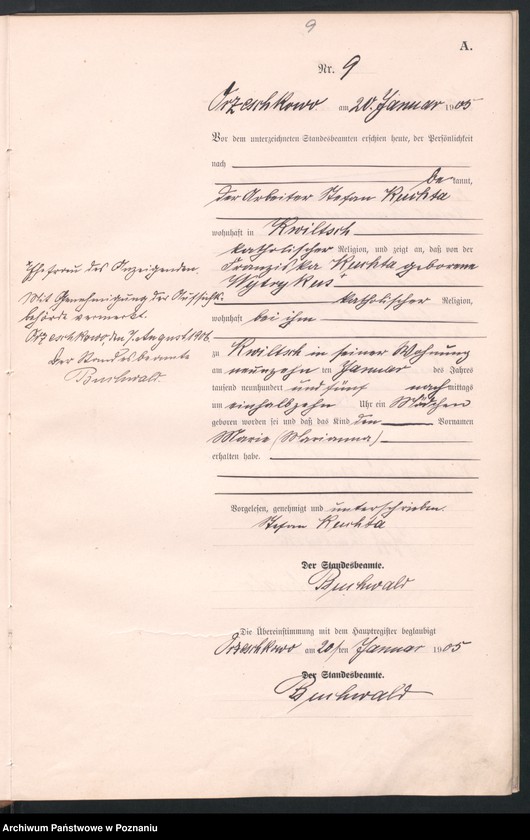 9
A.
Nr. 9
Orzeschkowo am 20. Januar 1905
Vor dem unterzeichneten Standesbeamten erschien heute, der Persönlichkeit
nach
be kannt,
der Arbeiter Stefan Kuchta
wohnhaft in Kwiltsch
katholischer Religion, und zeigt an, daß von der
Franziska Kuchta geborene
Wytrykus
Ehefrau des Anzeigenden.
katholischer Religion,
Mit Genehmigung der Aufsichts-
behörde vermerkt.
wohnhaft bei ihm
Orzeschkowo, den 7. August
Der Standesbeamte
Buchwald.
zu Kwiltsch in seiner Wohnung
am neunzehn ten Januar des Jahres
tausend neunhundert und fünf nach mittags
um einhalbzehn Uhr ein Mädchen
geboren worden sei und daß das Kind den Vornamen
Marie (Marianna)
erhalten habe.
Vorgelesen, genehmigt und unterschrieben.
Stefan Kuchta
Der Standesbeamte.
Buchwald
Die Übereinstimmung mit dem Hauptregister beglaubigt
Orzeschkowo am 20/ten Januar 1905
Der Standesbeamte.
Buchwald
Archiwum Państwowe w Poznaniu